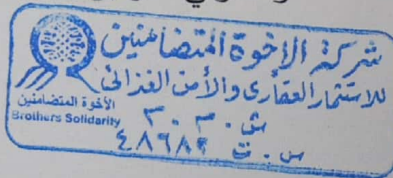 شركة الإخوة المتضامنين
للاستثمار العقارى والأمن الغذائى
الأخوة المتضامنين
Brothers Solidarity
ش . م . م
س . ت ٤٨٦٨٢